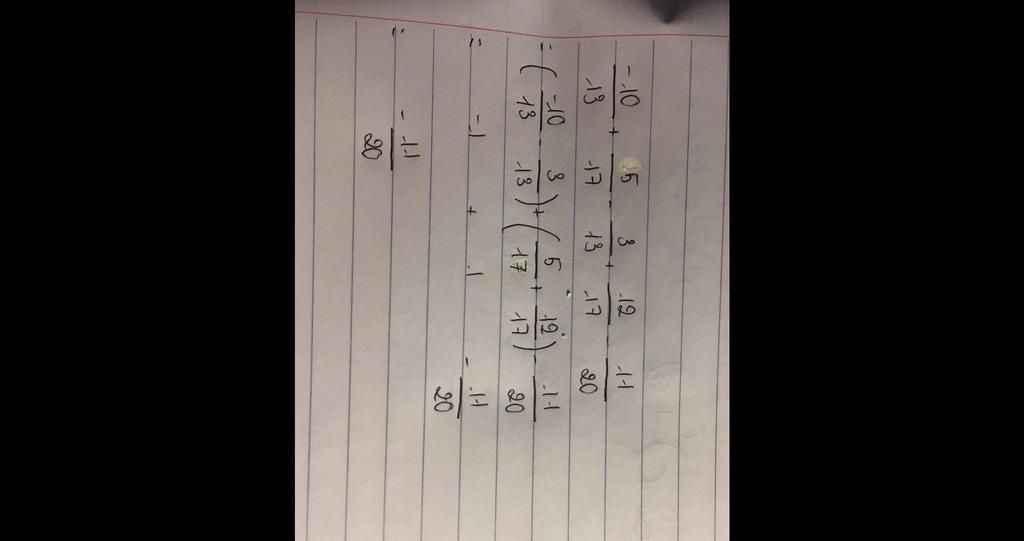 -10/13 + 5/17 - 3/13 + 12/17 - 11/20
= (-10/13 - 3/13) + (5/17 + 12/17) - 11/20
= -1 + 1 - 11/20
= -11/20